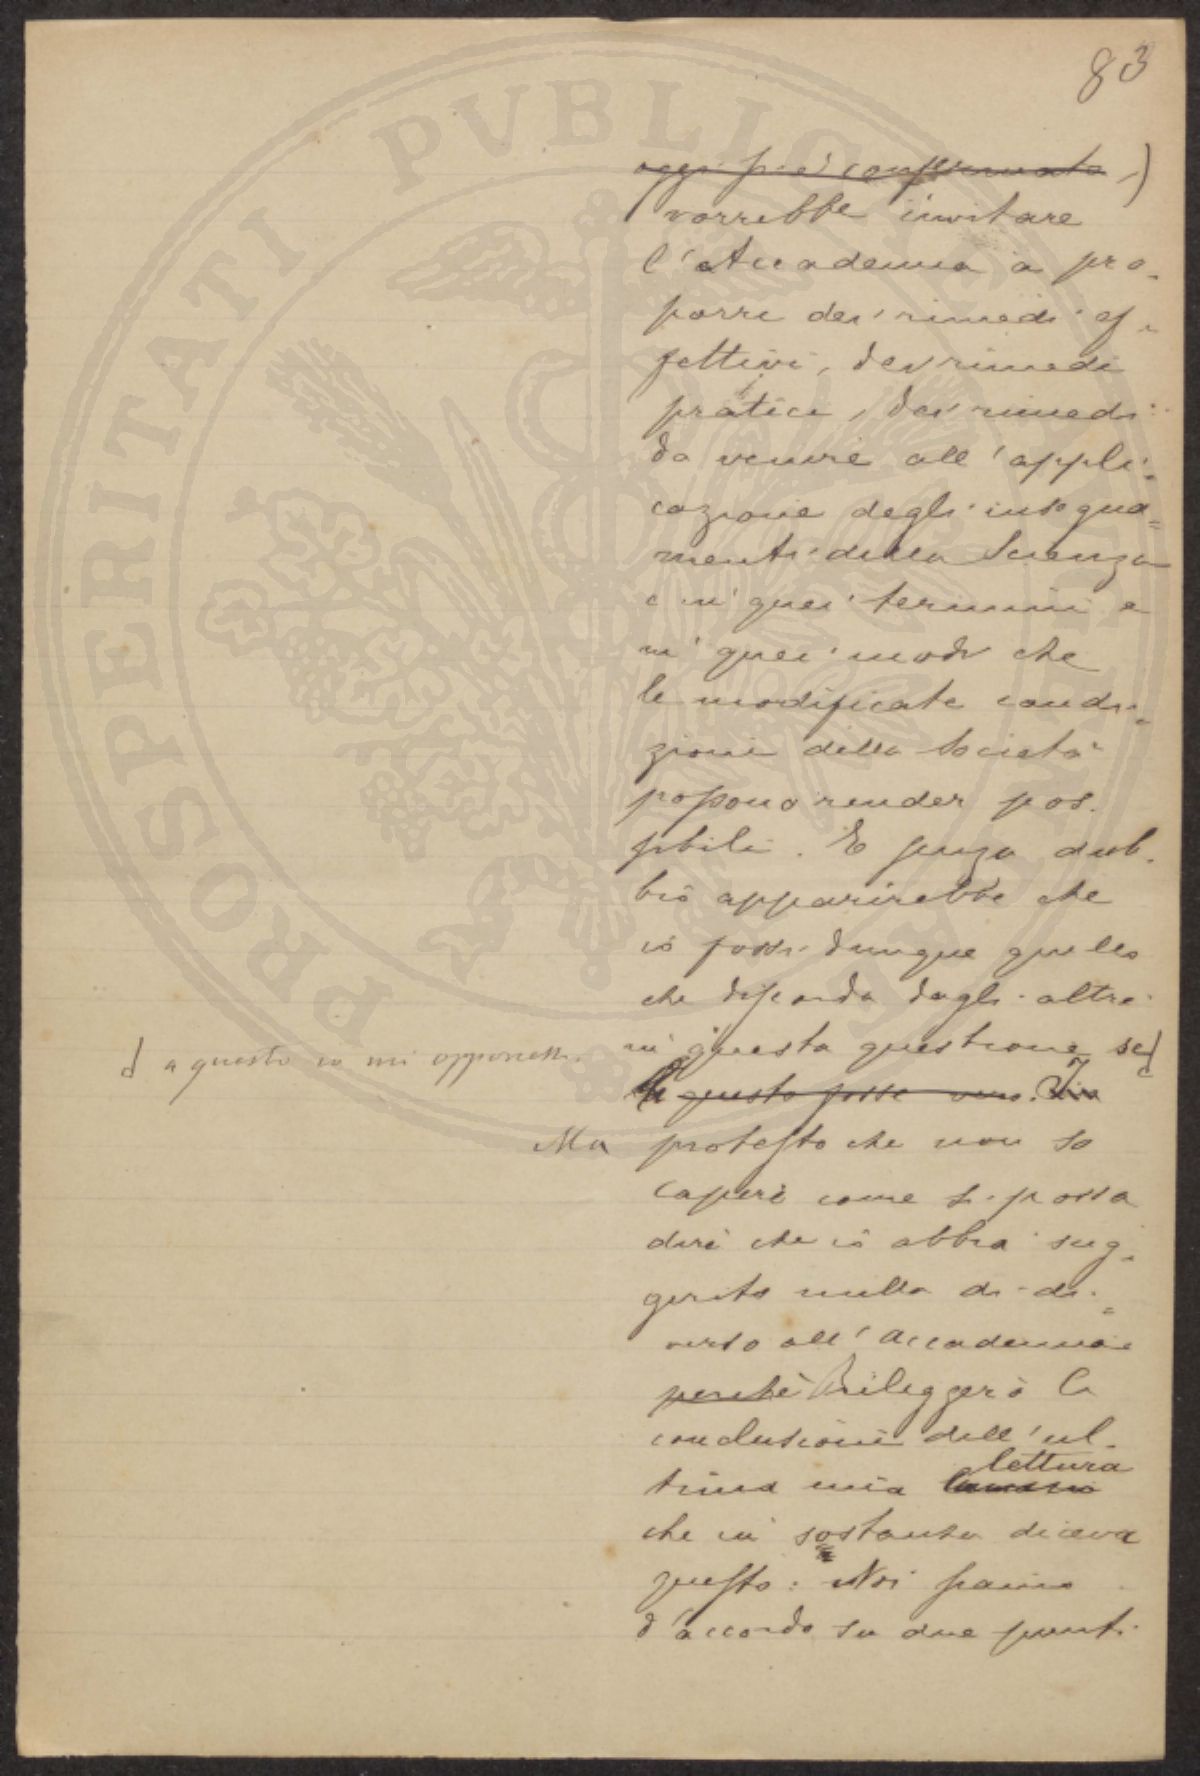 83
oggi si è confermato )
vorrebbe invitare
l'Accademia a pro-
porre dei rimedi ef-
fettivi, dei rimedi
pratici, dei rimedi
da venire all'appli-
cazione degli insegna=
menti della Scienza
e in quei termini e
in quei modi che
le modificate condi=
zioni della Società
possono render pos-
sibili. E senza dub-
bio apparirebbe che
io fossi dunque quello
che discorda dagli altri
in questa questione se
d a questo io mi opponessi.
se questo fosse vero. Io
Ma protesto che non so
capire come si possa
dire che io abbia sug-
gerito nulla di di=
verso all'Accademia
perchè Rileggerò la
conclusione dell'ul-
tima mia lettura
che in sostanza diceva
questo: Noi siamo
d'accordo su due punti
PROSPERITATI PUBLICAE